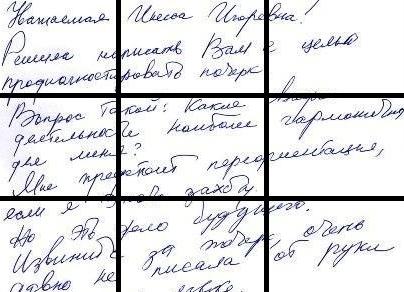 Уважаемая Инесса Игоревна!
Решила написать Вам с целью
продиагностировать почерк
Вопрос такой: Какие виды
деятельности наиболее гармоничны
для меня?
Мне предстоит переориентация,
если я захочу.
Но это дело будущего.
Извините за почерк, очень
давно не писала от руки